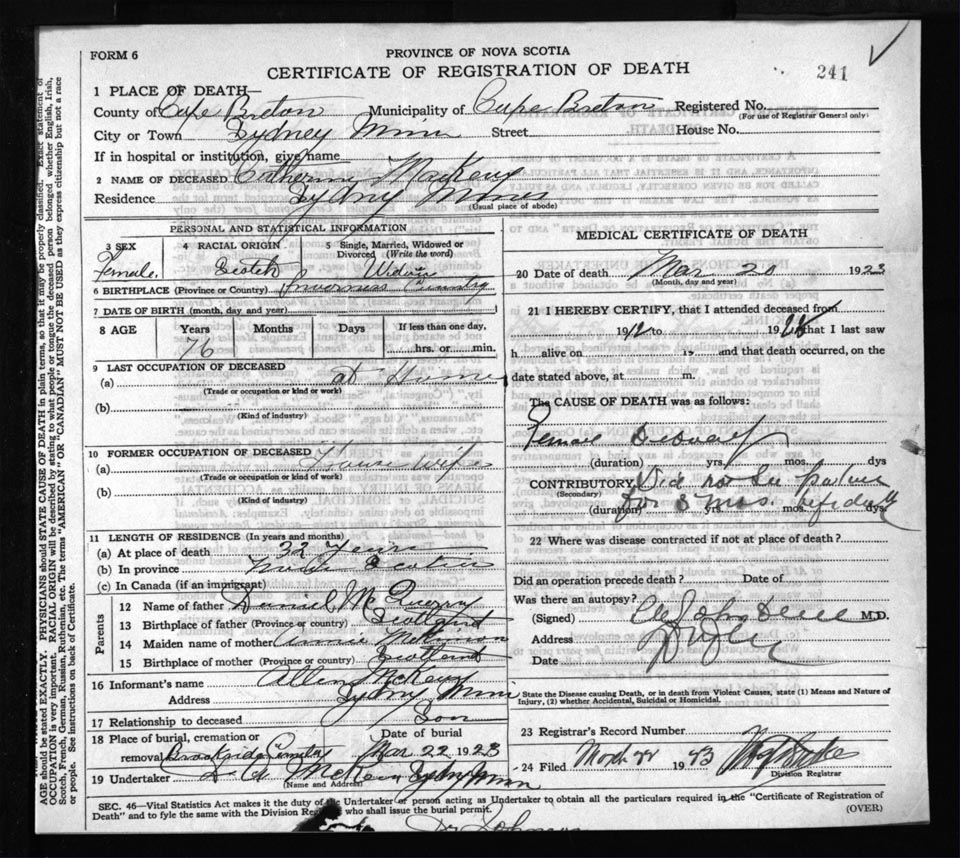 FORM 6
PROVINCE OF NOVA SCOTIA
CERTIFICATE OF REGISTRATION OF DEATH
241
1 PLACE OF DEATH—
County of Cape Breton Municipality of Cape Breton Registered No.
(For use of Registrar General only)
City or Town Sydney Mines Street House No.
If in hospital or institution, give name
2 NAME OF DECEASED Catherine
Residence Sydney Mines
(Usual place of abode)
PERSONAL AND STATISTICAL INFORMATION
3 SEX 4 RACIAL ORIGIN 5 Single, Married, Widowed or Divorced (Write the word)
Female Scotch Widow
6 BIRTHPLACE (Province or Country) Inverness County
7 DATE OF BIRTH (month, day and year)
8 AGE Years Months Days If less than one day,
76 hrs. or min.
9 LAST OCCUPATION OF DECEASED
(a) at Home
(Trade or occupation or kind or work)
(b)
(Kind of industry)
10 FORMER OCCUPATION OF DECEASED
(a) House Wife
(Trade or occupation or kind of work)
(b)
(Kind of industry)
11 LENGTH OF RESIDENCE (In years and months)
(a) At place of death 32 Years
(b) In province Nova Scotia
(c) In Canada (if an immigrant)
Parents
12 Name of father Daniel
13 Birthplace of father (Province or country) Scotland
14 Maiden name of mother Annie McKinnon
15 Birthplace of mother (Province or country) Scotland
16 Informant's name Allen
Address Sydney Mines
17 Relationship to deceased Son
18 Place of burial, cremation or removal Date of burial
Brookside Cemetery Mar 22 1923
19 Undertaker Sydney Mines
(Name and Address)
MEDICAL CERTIFICATE OF DEATH
20 Date of death Mar 20 1923
(Month, day and year)
21 I HEREBY CERTIFY, that I attended deceased from
191 to 192 that I last saw
h alive on 19 and that death occurred, on the
date stated above, at m.
The CAUSE OF DEATH was as follows:
(duration) yrs. mos. dys
CONTRIBUTORY Did not see patient
(Secondary)
(duration) for 3 mos. before death yrs. mos. dys.
22 Where was disease contracted if not at place of death?
Did an operation precede death? Date of
Was there an autopsy?
(Signed) M.D.
Address
Date
State the Disease causing Death, or in death from Violent Causes, state (1) Means and Nature of
Injury, (2) whether Accidental, Suicidal or Homicidal.
23 Registrar's Record Number
24 Filed 19
Division Registrar
SEC. 46—Vital Statistics Act makes it the duty of the Undertaker or person acting as Undertaker to obtain all the particulars required in the "Certificate of Registration of
Death" and to fyle the same with the Division who shall issue the burial permit.
(OVER)
AGE should be stated EXACTLY. PHYSICIANS should STATE CAUSE OF DEATH in plain terms, so that it may be properly classified. Exact statement of
OCCUPATION is very important. RACIAL ORIGIN will be described by stating to what people or tongue the deceased person belonged whether English, Irish,
Scotch, French, German, Russian, Ruthenian, etc. The terms "AMERICAN" OR "CANADIAN" MUST NOT BE USED as they express citizenship but not a race
or people. See instructions on back of Certificate.